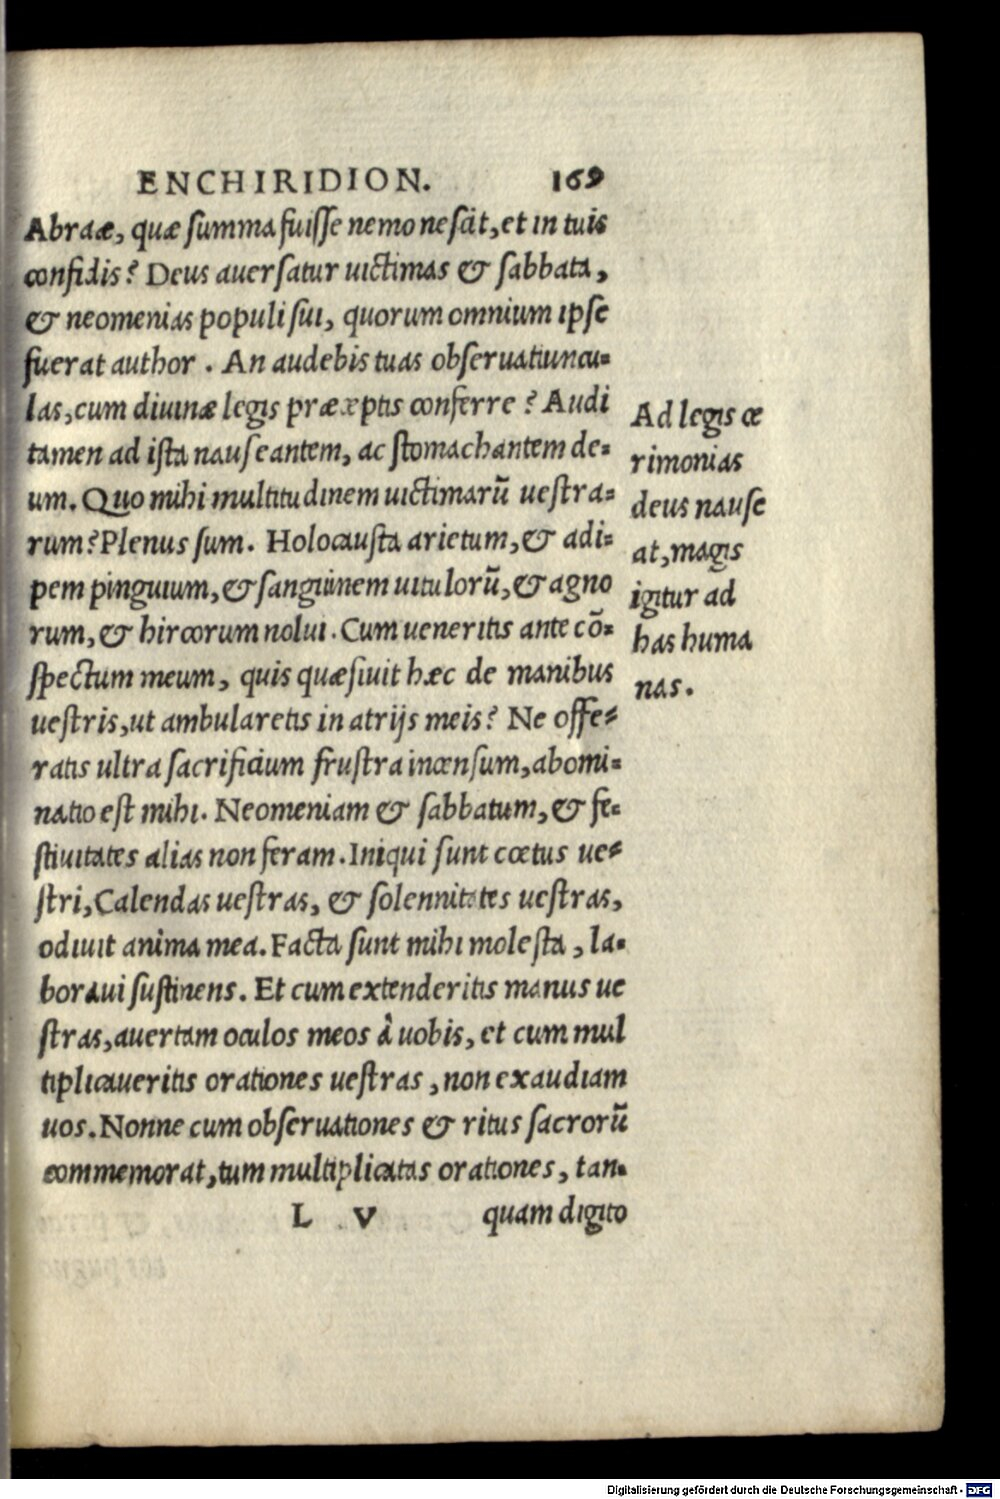 ENCHIRIDION. 169
Abraæ, quæ summa fuisse nemo nescit, et in tuis
confidis? Deus auersatur uictimas & sabbata,
& neomenias populi sui, quorum omnium ipse
fuerat author. An audebis tuas obseruatiuncu-
las, cum diuinæ legis præceptis conferre? Audi
tamen ad ista nauseantem, ac stomachantem de-
um. Quo mihi multitudinem uictimarũ uestra-
rum? Plenus sum. Holocausta arietum, & adi-
pem pinguium, & sanguinem uitulorũ, & agno
rum, & hircorum nolui. Cum ueneritis ante cõ-
spectum meum, quis quæsiuit hæc de manibus
uestris, ut ambularetis in atrijs meis? Ne offe-
ratis ultra sacrificium frustra incensum, abomi-
natio est mihi. Neomeniam & sabbatum, & fe-
stiuitates alias non feram. Iniqui sunt cœtus ue-
stri, Calendas uestras, & solennitates uestras,
odiuit anima mea. Facta sunt mihi molesta, la-
boraui sustinens. Et cum extenderitis manus ue
stras, auertam oculos meos à uobis, et cum mul
tiplicaueritis orationes uestras, non exaudiam
uos. Nonne cum obseruationes & ritus sacrorũ
commemorat, tum multiplicatas orationes, tan-
L V quam digito
Ad legis ce
rimonias
deus nause
at, magis
igitur ad
has huma
nas.
Digitalisierung gefördert durch die Deutsche Forschungsgemeinschaft - DFG